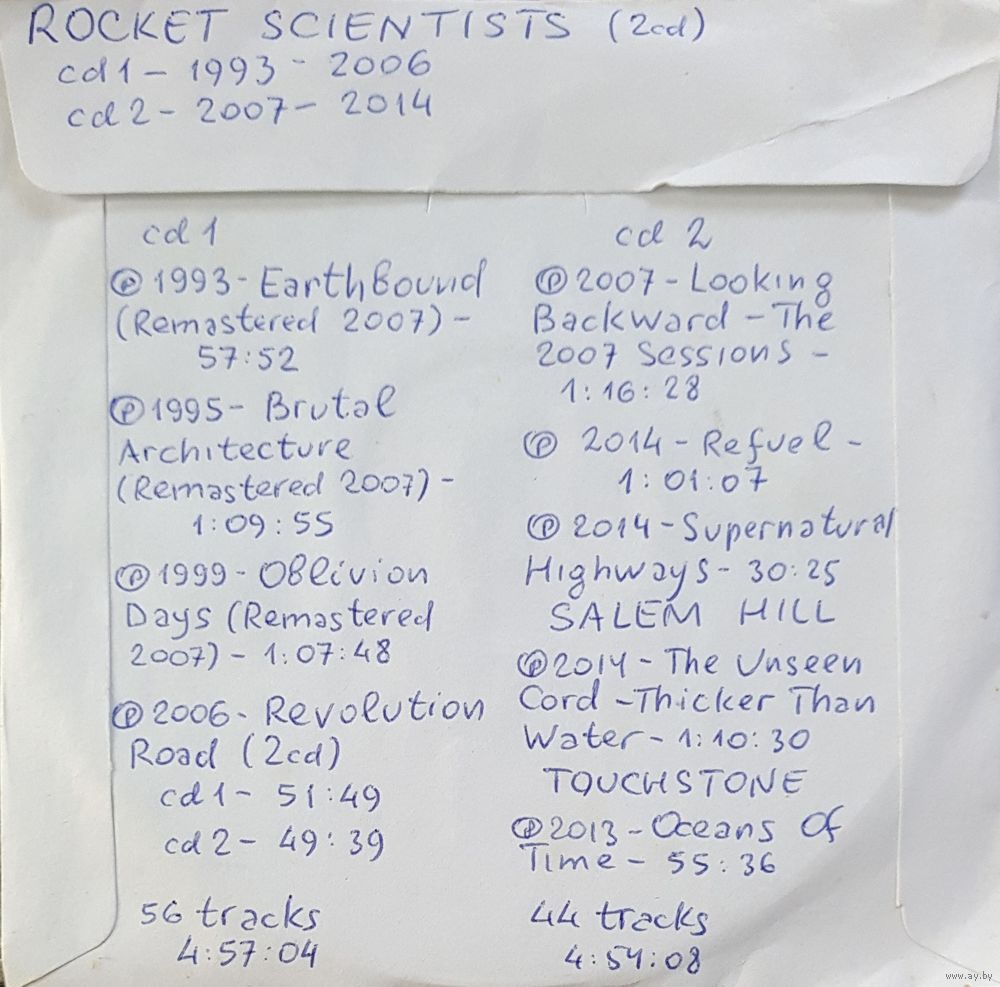 ROCKET SCIENTISTS (2cd)
cd1 - 1993 - 2006
cd2 - 2007 - 2014
cd 1
℗ 1993 - EarthBound
(Remastered 2007) -
57:52
℗ 1995 - Brutal
Architecture
(Remastered 2007) -
1:09:55
℗ 1999 - Oblivion
Days (Remastered
2007) - 1:07:48
℗ 2006 - Revolution
Road (2cd)
cd1 - 51:49
cd2 - 49:39
56 tracks
4:57:04
cd 2
℗ 2007 - Looking
Backward - The
2007 Sessions -
1:16:28
℗ 2014 - Refuel -
1:01:07
℗ 2014 - Supernatural
Highways - 30:25
SALEM HILL
℗ 2014 - The Unseen
Cord - Thicker Than
Water - 1:10:30
TOUCHSTONE
℗ 2013 - Oceans Of
Time - 55:36
44 tracks
4:54:08
www.ay.by